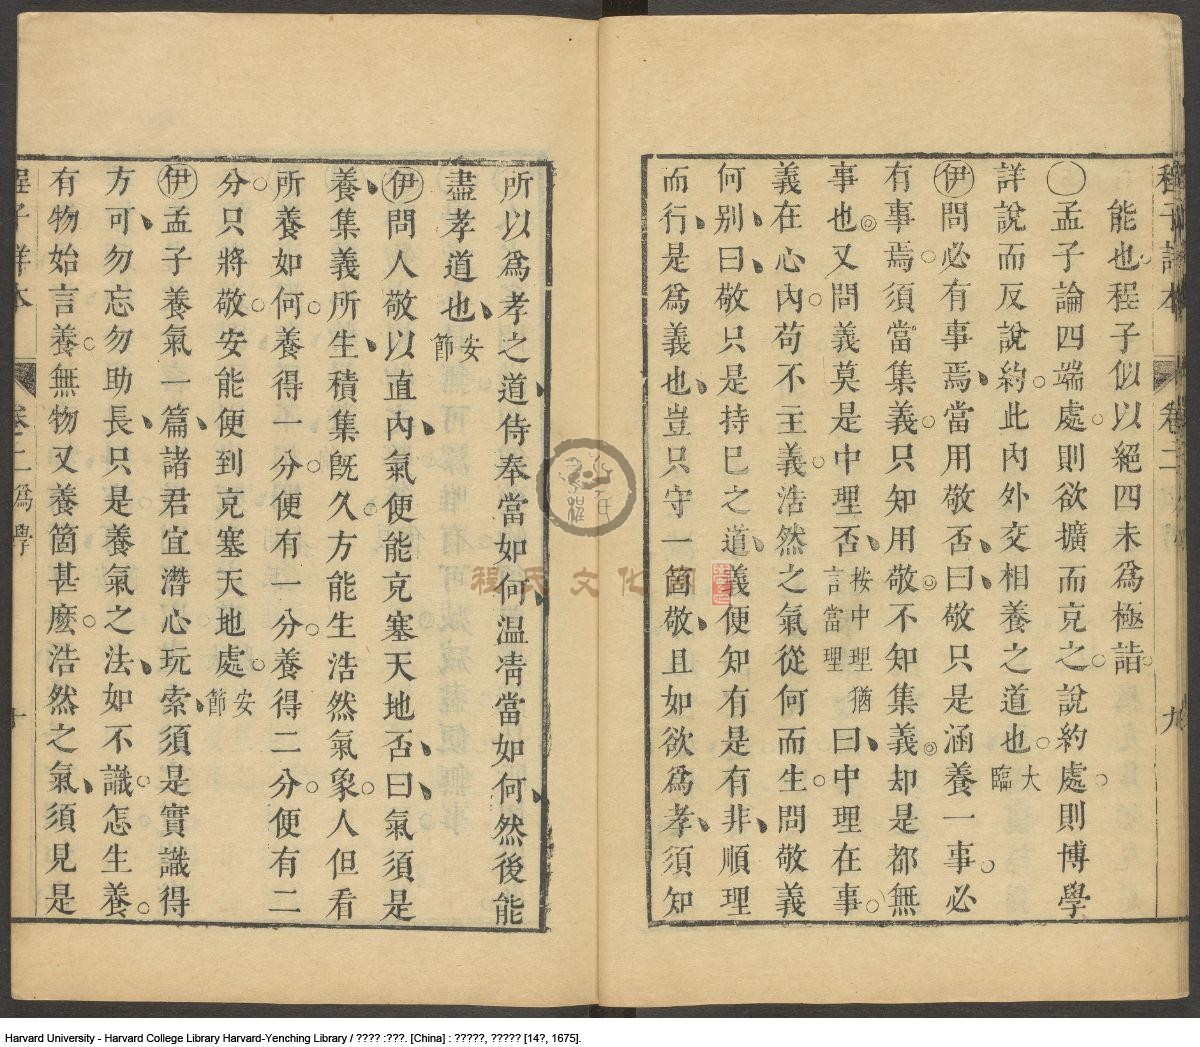 程子詳本 卷二 九
能也程子似以絕四未爲極詣
〇孟子論四端處則欲擴而克之說約處則博學
詳說而反說約此內外交相養之道也大臨
伊問必有事焉當用敬否曰敬只是涵養一事必
有事焉須當集義只知用敬不知集義却是都無
事也又問義莫是中理否按中理猶言當理曰中理在事
義在心內苟不主義浩然之氣從何而生問敬義
何别曰敬只是持已之道義便知有是有非順理
而行是爲義也豈只守一箇敬且如欲爲孝須知
所以爲孝之道侍奉當如何温凊當如何然後能
盡孝道也安節
伊問人敬以直內氣便能克塞天地否曰氣須是
養集義所生積集旣久方能生浩然氣象人但看
所養如何養得一分便有一分養得二分便有二
分只將敬安能便到克塞天地處安節
伊孟子養氣一篇諸君宜潛心玩索須是實識得
方可勿忘勿助長只是養氣之法如不識怎生養
有物始言養無物又養箇甚麽浩然之氣須見是
程子詳本 卷二 爲學 十
程氏文化
Harvard University - Harvard College Library Harvard-Yenching Library / ???? :???. [China] : ?????, ????? [14?, 1675].